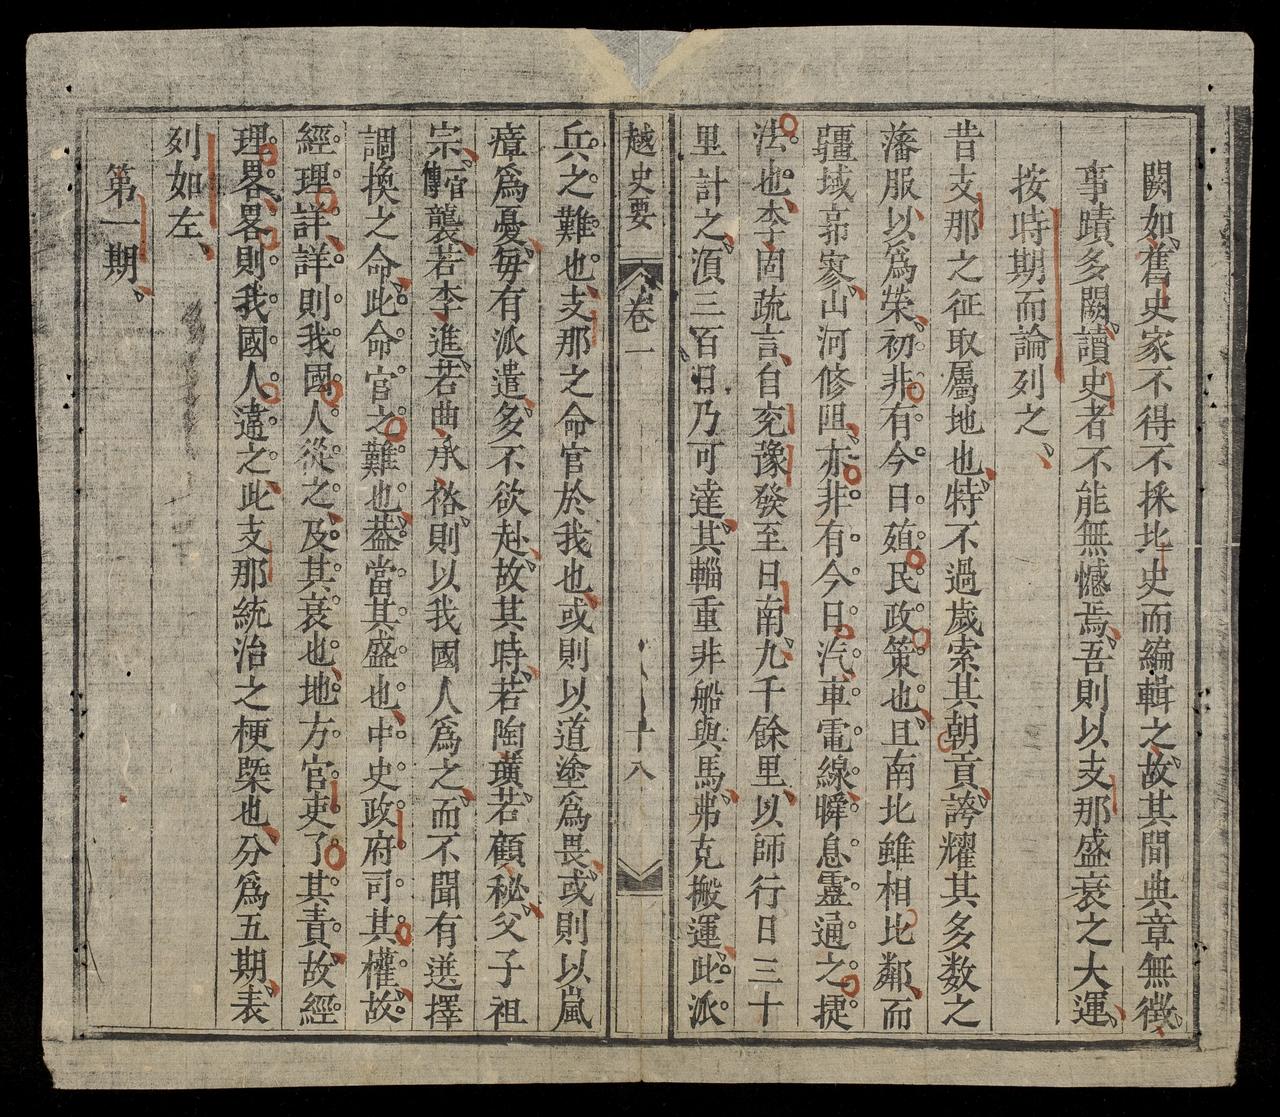 闕如、舊史家不得不採北史而編輯之、故其間典章無徵、
事蹟多闕、讀史者不能無憾焉、吾則以支那盛衰之大運、
按時期而論列之、
昔支那之征取屬地也、特不過歲索其朝貢、誇耀其多数之
藩服、以爲榮、初非有今日殖民政策也、且南北雖相比鄰、而
疆域寥寥、山河修阻、亦非有今日汽車電線、瞬息靈通之捷
法也、李固疏言、自兗豫發至日南、九千餘里、以師行日三十
里計之、湏三百日乃可達、其輜重非船與馬、弗克搬運、此派
越史要 卷一 十八
兵之難也、支那之命官於我也、或則以道塗爲畏、或則以嵐
瘴爲憂、每有派遣、多不欲赴、故其時、若陶璜、若顧秘、父子祖
宗、官傳襲、若李進、若曲承𥙿、則以我國人爲之、而不聞有選擇
調換之命、此命官之難也、盖當其盛也、中史政府司其權、故
經理詳、詳則我國人從之、及其衰也、地方官吏了其責、故經
理畧、畧則我國人違之、此支那統治之梗槩也、分爲五期、表
列如左、
第一期、